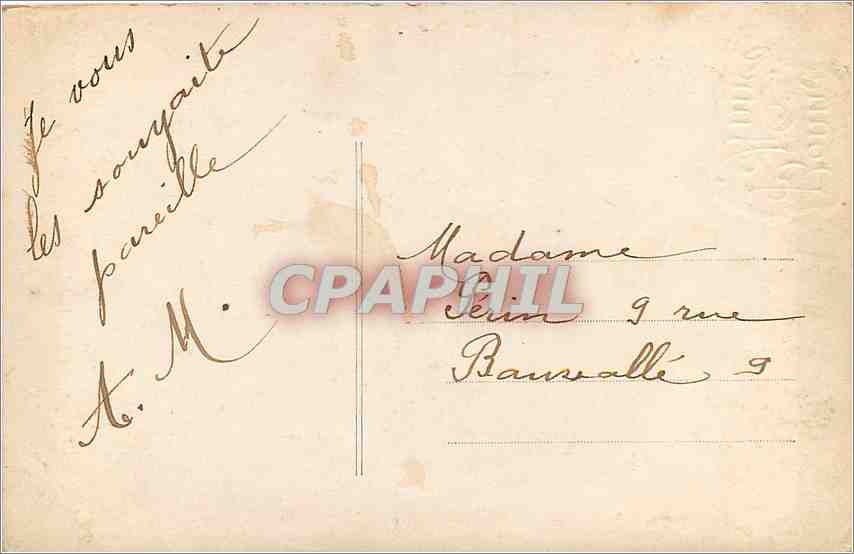 Je vous
les souyaite
pareille
A. M.
Madame
Périn 9 rue
Bauvallé 9
CPAPHIL